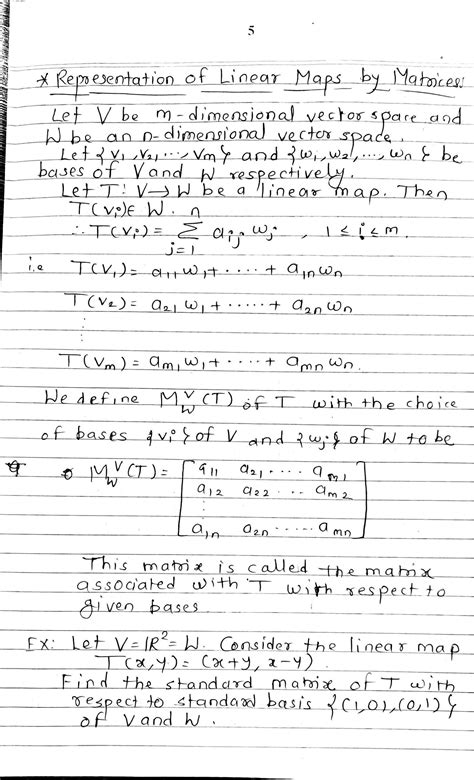 5
* Representation of Linear Maps by Matrices:
Let V be m-dimensional vector space and
W be an n-dimensional vector space.
Let {v₁, v₂, ..., vm} and {w₁, w₂, ..., wn} be
bases of V and W respectively.
Let T: V→W be a linear map. Then
T(vi) ∈ W.
∴ T(vi) = n Σ j=1 aij wj , 1 ≤ i ≤ m.
i.e T(v₁) = a₁₁w₁ + ..... + a₁nwn
T(v₂) = a₂₁w₁ + ..... + a₂nwn
⋮
T(vm) = am₁w₁ + ..... + amnwn.
We define M^V_W(T) of T with the choice
of bases {vi} of V and {wj} of W to be
M^V_W(T) = [ a₁₁ a₂₁ .... am₁
a₁₂ a₂₂ ... am₂
⋮
a₁n a₂n ..... amn ]
This matrix is called the matrix
associated with T with respect to
given bases
EX: Let V = IR² = W. Consider the linear map
T(x,y) = (x+y, x-y).
Find the standard matrix of T with
respect to standard basis {(1,0),(0,1)}
of V and W.